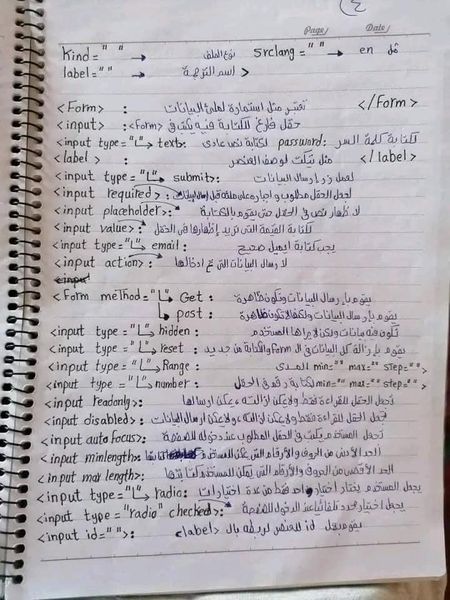 ٤
Page Date
kind=" " → نوع الملف srclang=" " → en مثل
label=" " → اسم الترجمة >
<Form> : تعتبر مثل استمارة لملئ البيانات </Form>
<input> : حقل فارغ للكتابة فيه يكتب في <Form>
<input type="↳ text: لكتابة نص عادي password: لكتابة كلمة السر
<label> : مثل يكتب لوصف العنصر </label>
<input type="↳ submit: لعمل زر إرسال البيانات
<input required>: لجعل الحقل مطلوب و اجباره على ملئه قبل إرسال البيانات
<input placeholder>: لا ظهار نص في الحقل حتى يقوم بالكتابة
<input value>: كتابة القيمة التي تريد إظهارها في الحقل
<input type="↳ email: يجب كتابة ايميل صحيح
<input action> لا رسال البيانات التي تم ادخالها
<input
<Form method="↳ Get : يقوم بإرسال البيانات وتكون ظاهرة
↳ post : يقوم بإرسال البيانات ولكنها لا تكون ظاهرة
<input type="↳ hidden : تكون فيه بيانات ولكن لا يراها المستخدم
<input type="↳ reset : يقوم بإزالة كل البيانات في ال Form والكتابة من جديد
<input type="↳ Range : المدى min=" " max=" " step=" ">
<input type="↳ number: لكتابة رقم في الحقل min=" " max=" " step=" ">
<input readonly>: تجعل الحقل للقراءة فقط ولا يمكن إزالته و يمكن ارسالها
<input disabled>: تجعل الحقل للقراءة فقط ولا يمكن ازالته ولا يمكن ارسال البيانات
<input autoFocus>: تجعل المستخدم يكتب في الحقل المطلوب عند دخوله للصفحة
<input minlength>: الحد الأدنى من الحروف والأرقام التي يمكن للمستخدم
<input max length>: الحد الأقصى من الحروف والأرقام التي يمكن للمستخدم كتابتها
<input type="↳ radio: يجعل المستخدم يختار اختيار واحد فقط من عدة اختيارات
<input type="radio" checked>: يجعل اختيار محدد تلقائيا عند الدخول للصفحة
<input id=" ">: id للعنصر لربطه بال <label>